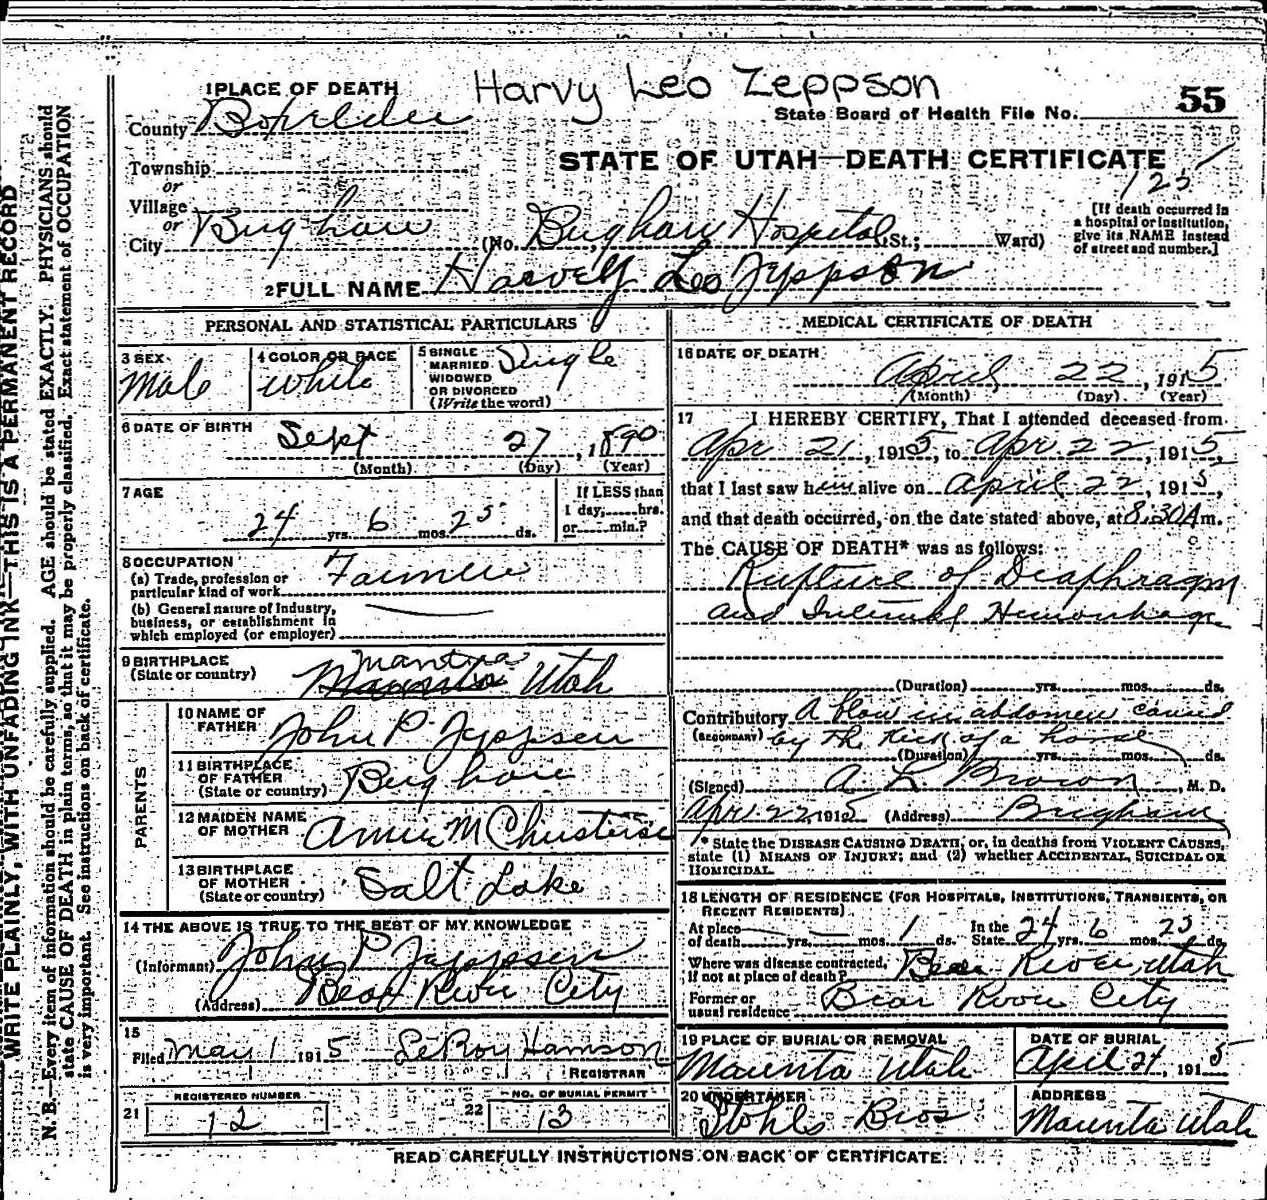 Harvy Leo Zeppson
1 PLACE OF DEATH
State Board of Health File No. 55
County Boxelder
STATE OF UTAH—DEATH CERTIFICATE
125
Township
or
Village
or
City Brigham (No. Brigham Hospital St.; Ward)
[If death occurred in a hospital or institution, give its NAME instead of street and number.]
2 FULL NAME Harvey Leo Jeppson
PERSONAL AND STATISTICAL PARTICULARS
3 SEX Male
4 COLOR OR RACE white
5 SINGLE MARRIED WIDOWED OR DIVORCED (Write the word) Single
6 DATE OF BIRTH Sept 27, 1890
(Month) (Day) (Year)
7 AGE 24 yrs. 6 mos. 25 ds.
If LESS than 1 day, hrs. or min.?
8 OCCUPATION
(a) Trade, profession or particular kind of work Farmer
(b) General nature of Industry, business, or establishment in which employed (or employer)
9 BIRTHPLACE (State or country) Mantua Utah
PARENTS
10 NAME OF FATHER John P Jeppsen
11 BIRTHPLACE OF FATHER (State or country) Brigham
12 MAIDEN NAME OF MOTHER Annie M
13 BIRTHPLACE OF MOTHER (State or country) Salt Lake
14 THE ABOVE IS TRUE TO THE BEST OF MY KNOWLEDGE
(Informant) John P Jeppsen
(Address) Bear River City
15
Filed May 1 1915 LeRoy
REGISTRAR
21 REGISTERED NUMBER 12
22 NO. OF BURIAL PERMIT 13
MEDICAL CERTIFICATE OF DEATH
16 DATE OF DEATH April 22, 1915
(Month) (Day) (Year)
17 I HEREBY CERTIFY, That I attended deceased from
Apr 21, 1915, to Apr 22, 1915,
that I last saw him alive on April 22, 1915,
and that death occurred, on the date stated above, at 8.30 A m.
The CAUSE OF DEATH* was as follows:
Rupture of Diaphragm
and Internal Hemorrhage
(Duration) yrs. mos. ds.
Contributory A blow in abdomen caused
(SECONDARY) by the kick of a horse
(Duration) yrs. mos. ds.
(Signed) A. L. Brown, M. D.
Apr. 22, 1915 (Address) Brigham
* State the DISEASE CAUSING DEATH, or, in deaths from VIOLENT CAUSES, state (1) MEANS OF INJURY; and (2) whether ACCIDENTAL, SUICIDAL OR HOMICIDAL.
18 LENGTH OF RESIDENCE (FOR HOSPITALS, INSTITUTIONS, TRANSIENTS, OR RECENT RESIDENTS)
At place of death yrs. mos. 1 ds. In the State 24 yrs. 6 mos. 25 ds.
Where was disease contracted, if not at place of death? Bear River, Utah
Former or usual residence Bear River City
19 PLACE OF BURIAL OR REMOVAL Maunta Utah
DATE OF BURIAL April 24, 1915
20 UNDERTAKER Stohls Bros
ADDRESS Maunta Utah
READ CAREFULLY INSTRUCTIONS ON BACK OF CERTIFICATE.
WRITE PLAINLY, WITH UNFADING INK—THIS IS A PERMANENT RECORD
N. B.—Every item of information should be carefully supplied. AGE should be stated EXACTLY. PHYSICIANS should
state CAUSE OF DEATH in plain terms, so that it may be properly classified. Exact statement of OCCUPATION
is very important. See instructions on back of certificate.